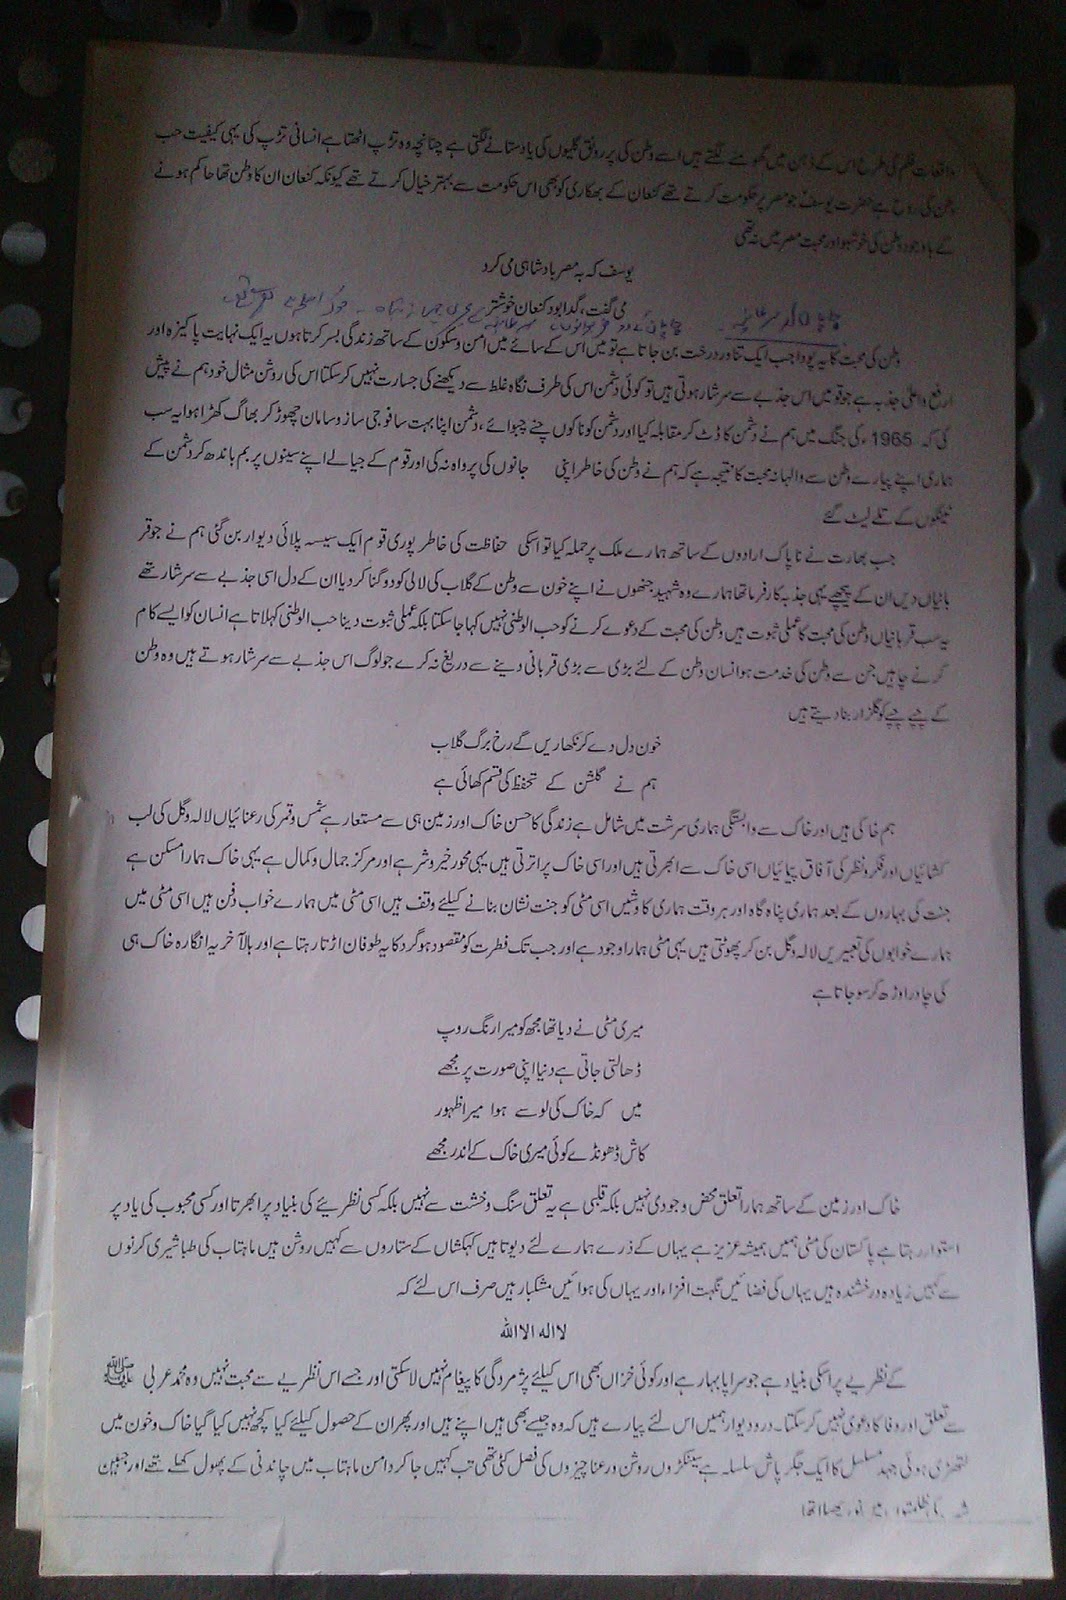 واقعات فلم کی طرح اس کے ذہن میں گھومنے لگتے ہیں اسے وطن کی پر رونق گلیوں کی یاد ستانے لگتی ہے چنانچہ وہ تڑپ اٹھتا ہے انسانی تڑپ کی یہی کیفیت حب
وطن کی روح ہے حضرت یوسفؑ جو مصر پر حکومت کرتے تھے کنعان کے بھکاری کو بھی اس حکومت سے بہتر خیال کرتے تھے کیونکہ کنعان ان کا وطن تھا حاکم ہونے
کے باوجود وطن کی خوشبو اور محبت مصر میں نہ تھی
یوسف کہ بہ مصر بادشاہی می کرد
می گفت، گدا بود کنعان خوشتر
وطن کی محبت کا یہ پودا جب ایک تناور درخت بن جاتا ہے تو میں اس کے سائے میں امن و سکون کے ساتھ زندگی بسر کرتا ہوں یہ ایک نہایت پاکیزہ اور
ارفع و اعلیٰ جذبہ ہے جو قومیں اس جذبے سے سرشار ہوتی ہیں تو کوئی دشمن اس کی طرف نگاہ غلط سے دیکھنے کی جسارت نہیں کر سکتا اس کی روشن مثال خود ہم نے پیش
کی کہ 1965ء کی جنگ میں ہم نے دشمن کا ڈٹ کر مقابلہ کیا اور دشمن کو ناکوں چنے چبوائے، دشمن اپنا بہت سا فوجی ساز و سامان چھوڑ کر بھاگ کھڑا ہوا یہ سب
ہماری اپنے پیارے وطن سے والہانہ محبت کا نتیجہ ہے کہ ہم نے وطن کی خاطر اپنی جانوں کی پرواہ نہ کی اور قوم کے جیالے اپنے سینوں پر بم باندھ کر دشمن کے
ٹینکوں کے تلے لیٹ گئے
جب بھارت نے ناپاک ارادوں کے ساتھ ہمارے ملک پر حملہ کیا تو اسکی حفاظت کی خاطر پوری قوم ایک سیسہ پلائی دیوار بن گئی ہم نے جو قر
بانیاں دیں ان کے پیچھے یہی جذبہ کارفرما تھا ہمارے وہ شہید جنھوں نے اپنے خون سے وطن کے گلاب کی لالی کو دوگنا کر دیا ان کے دل اسی جذبے سے سرشار تھے
یہ سب قربانیاں وطن کی محبت کا عملی ثبوت ہیں وطن کی محبت کے دعوے کرنے کو حب الوطنی نہیں کہا جا سکتا بلکہ عملی ثبوت دینا حب الوطنی کہلاتا ہے انسان کو ایسے کام
کرنے چاہیں جن سے وطن کی خدمت ہو انسان وطن کے لئے بڑی سے بڑی قربانی دینے سے دریغ نہ کرے جو لوگ اس جذبے سے سرشار ہوتے ہیں وہ وطن
کے چپے چپے کو گلزار بنا دیتے ہیں
خون دل دے کر نکھاریں گے رخ برگ گلاب
ہم نے گلشن کے تحفظ کی قسم کھائی ہے
ہم خاکی ہیں اور خاک سے وابستگی ہماری سرشت میں شامل ہے زندگی کا حسن خاک اور زمین ہی سے مستعار ہے شمس و قمر کی رعنائیاں لالہ و گل کی لب
کشائیاں اور فکر و نظر کی آفاق پیمائیاں اسی خاک سے ابھرتی ہیں اور اسی خاک پر اترتی ہیں یہی محور خیر و شر ہے اور مرکز جمال و کمال ہے یہی خاک ہمارا مسکن ہے
جنت کی بہاروں کے بعد ہماری پناہ گاہ اور ہر وقت ہماری کاوشیں اسی مٹی کو جنت نشان بنانے کیلئے وقف ہیں اسی مٹی میں ہمارے خواب دفن ہیں اسی مٹی میں
ہمارے خوابوں کی تعبیریں لالہ و گل بن کر پھوٹتی ہیں یہی مٹی ہمارا وجود ہے اور جب تک فطرت کو مقصود ہو گرد کا یہ طوفان اڑتا رہتا ہے اور بالآخر یہ انگارہ خاک ہی
کی چادر اوڑھ کر سو جاتا ہے
میری مٹی نے دیا تھا مجھ کو میرا رنگ روپ
ڈھالتی جاتی ہے دنیا اپنی صورت پر مجھے
میں کہ خاک کی لو سے ہوا میرا ظہور
کاش ڈھونڈے کوئی میری خاک کے اندر مجھے
خاک اور زمین کے ساتھ ہمارا تعلق محض وجودی نہیں بلکہ قلبی ہے یہ تعلق سنگ و خشت سے نہیں بلکہ کسی نظریئے کی بنیاد پر ابھرتا اور کسی محبوب کی یاد پر
استوار رہتا ہے پاکستان کی مٹی ہمیں ہمیشہ عزیز ہے یہاں کے ذرے ہمارے لئے دیوتا ہیں کہکشاں کے ستاروں سے کہیں روشن ہیں ماہتاب کی طباشیری کرنوں
سے کہیں زیادہ درخشندہ ہیں یہاں کی فضائیں نگہت افزاء اور یہاں کی ہوائیں مشکبار ہیں صرف اس لئے کہ
لا الہ الا اللہ
کے نظریے پر اسکی بنیاد ہے جو سراپا بہار ہے اور کوئی خزاں بھی اس کیلئے پژمردگی کا پیغام نہیں لا سکتی اور جسے اس نظریے سے محبت نہیں وہ محمد عربی ﷺ
سے تعلق اور وفا کا دعویٰ نہیں کر سکتا۔ در و دیوار ہمیں اس لئے پیارے ہیں کہ وہ جیسے بھی ہیں اپنے ہیں اور پھر ان کے حصول کیلئے کیا کچھ نہیں کیا گیا خاک و خون میں
لتھڑی ہوئی جہد مسلسل کا ایک جگر پاش سلسلہ ہے سینکڑوں روشن و رعنا چیزوں کی فصل کٹی تھی تب کہیں جا کر دامن ماہتاب میں چاندنی کے پھول کھلے تھے اور جبین